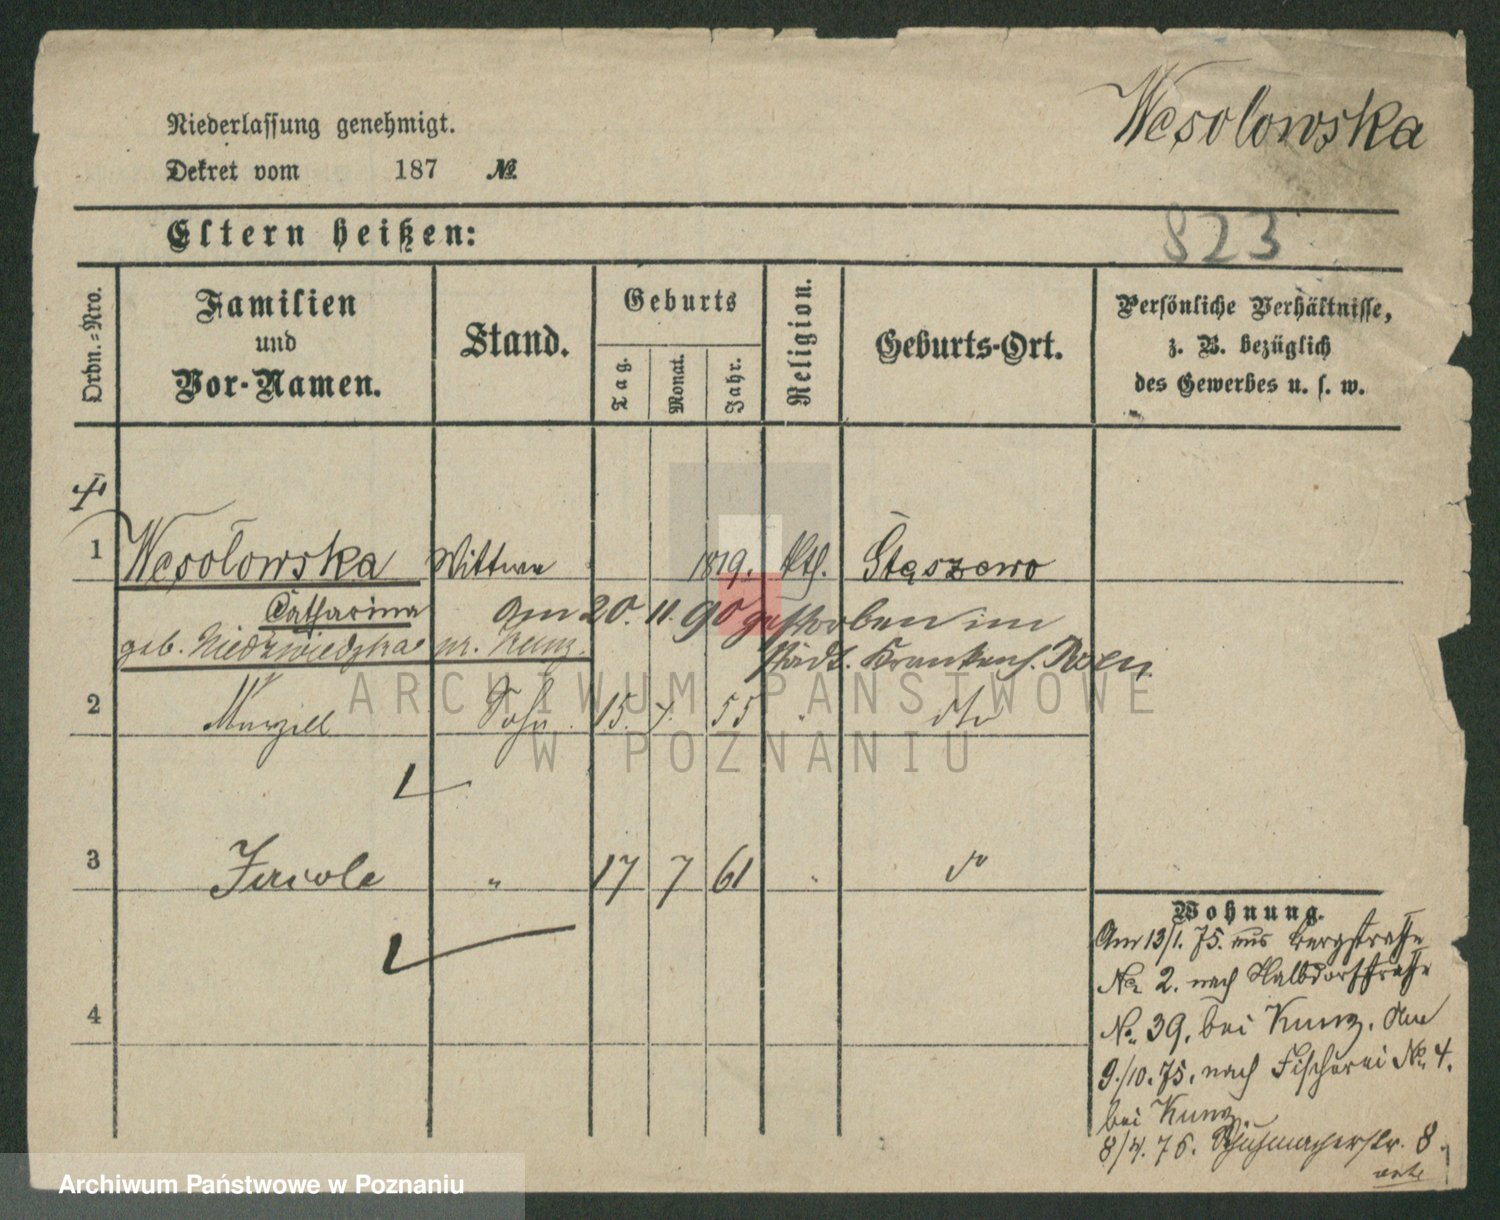 Wesolowska
Niederlassung genehmigt.
Dekret vom 187 №
823
Eltern heißen:
Ordn.-Nro.
Familien
und
Vor-Namen.
Stand.
Geburts
Tag.
Monat.
Jahr.
Religion.
Geburts-Ort.
Persönliche Verhältnisse,
z. B. bezüglich
des Gewerbes u. s. w.
1 Wesołowska Wittwe 1819. Kth. Stąszewo
Catharina Am 20. 11. 90 gestorben im
geb. Niedzwiedzka städt. Krankenh. Posen.
2 Sohn 15. 55 dto
3 " 17 7 61 " do
4
Wohnung.
Am 13/1. 75. aus Bergstraße
No 2. nach Halbdorfstraße
No. 39. bei Kunz. Am
9./10. 75. nach Fischerei No. 4.
bei Kunz.
8/4. 76. Schuhmacherstr. 8.
ARCHIWUM PAŃSTWOWE
W POZNANIU
Archiwum Państwowe w Poznaniu